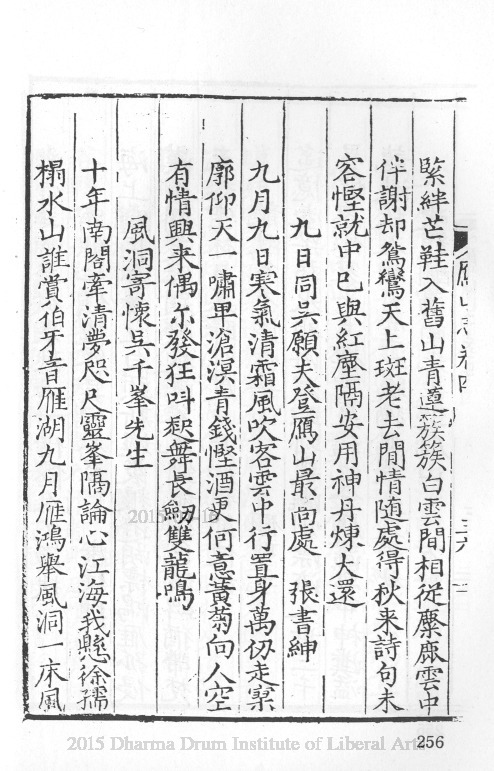 緊絆芒鞋入舊山青蓮簇簇白雲間相從麋鹿雲中
伴謝却鴛鸞天上班老去閒情随處得秋來詩句未
容慳就中已與紅塵隔安用神丹煉大還
九日同吴願夫登鴈山最高處 張書紳
九月九日寒氣清霜風吹客雲中行置身萬仞走寥
廓仰天一嘯卑滄溟青錢慳酒更何意黃菊向人空
有情興来偶尔發狂呌起舞長劒雙龍鳴
風洞寄懷吴千峯先生
十年南閣牽清夢咫尺靈峯隔論心江海我懸徐孺
榻水山誰賞伯牙音雁湖九月雁鴻舉風洞一床風
鴈山志卷四
三六
2015-
2015 Dharma Drum Institute of Liberal Arts
256